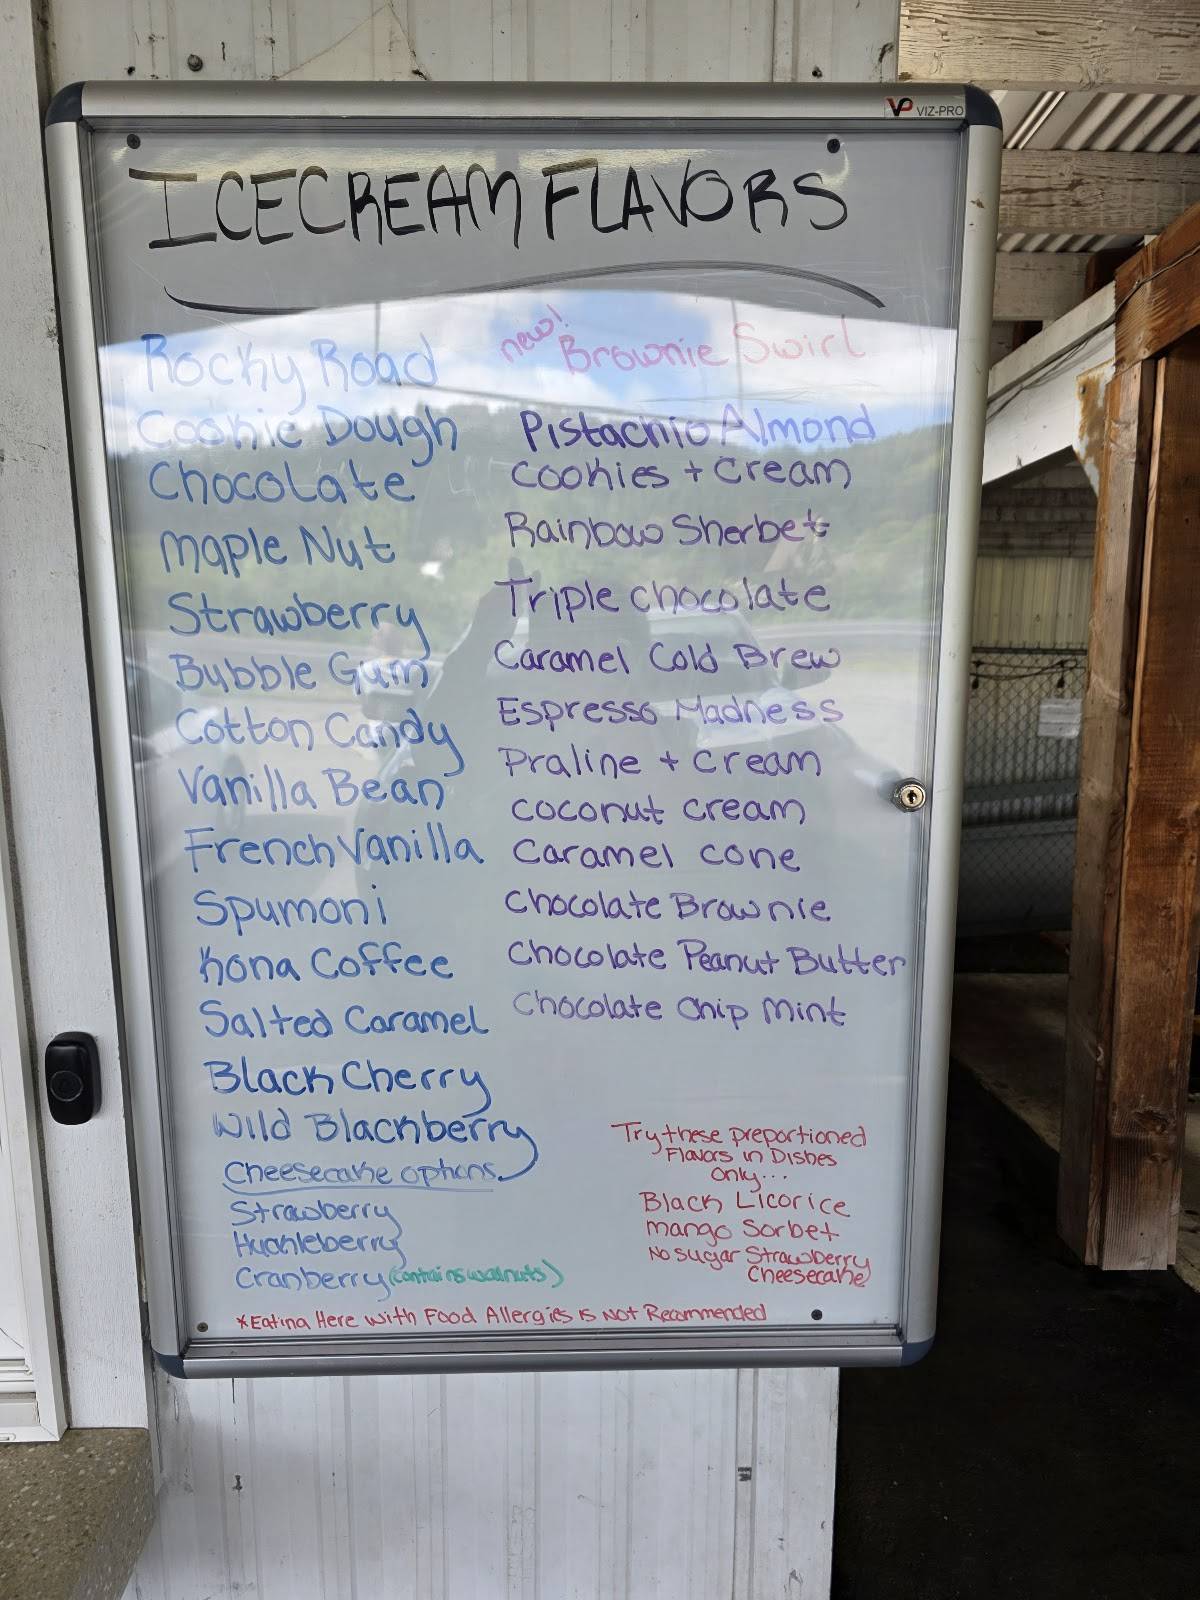 VP VIZ-PRO
ICECREAM FLAVORS
Rocky Road
Cookie Dough
Chocolate
Maple Nut
Strawberry
Bubble Gum
Cotton Candy
Vanilla Bean
French Vanilla
Spumoni
Kona Coffee
Salted Caramel
Black Cherry
Wild Blackberry
Cheesecake options
Strawberry
Huckleberry
Cranberry (contains walnuts)
new! Brownie Swirl
Pistachio Almond
Cookies + Cream
Rainbow Sherbet
Triple chocolate
Caramel Cold Brew
Espresso Madness
Praline + cream
coconut cream
Caramel cone
Chocolate Brownie
Chocolate Peanut Butter
Chocolate chip Mint
Try these preportioned
Flavors in Dishes
only...
Black Licorice
mango Sorbet
No sugar Strawberry
Cheesecake
*Eating Here with Food Allergies is Not Recommended